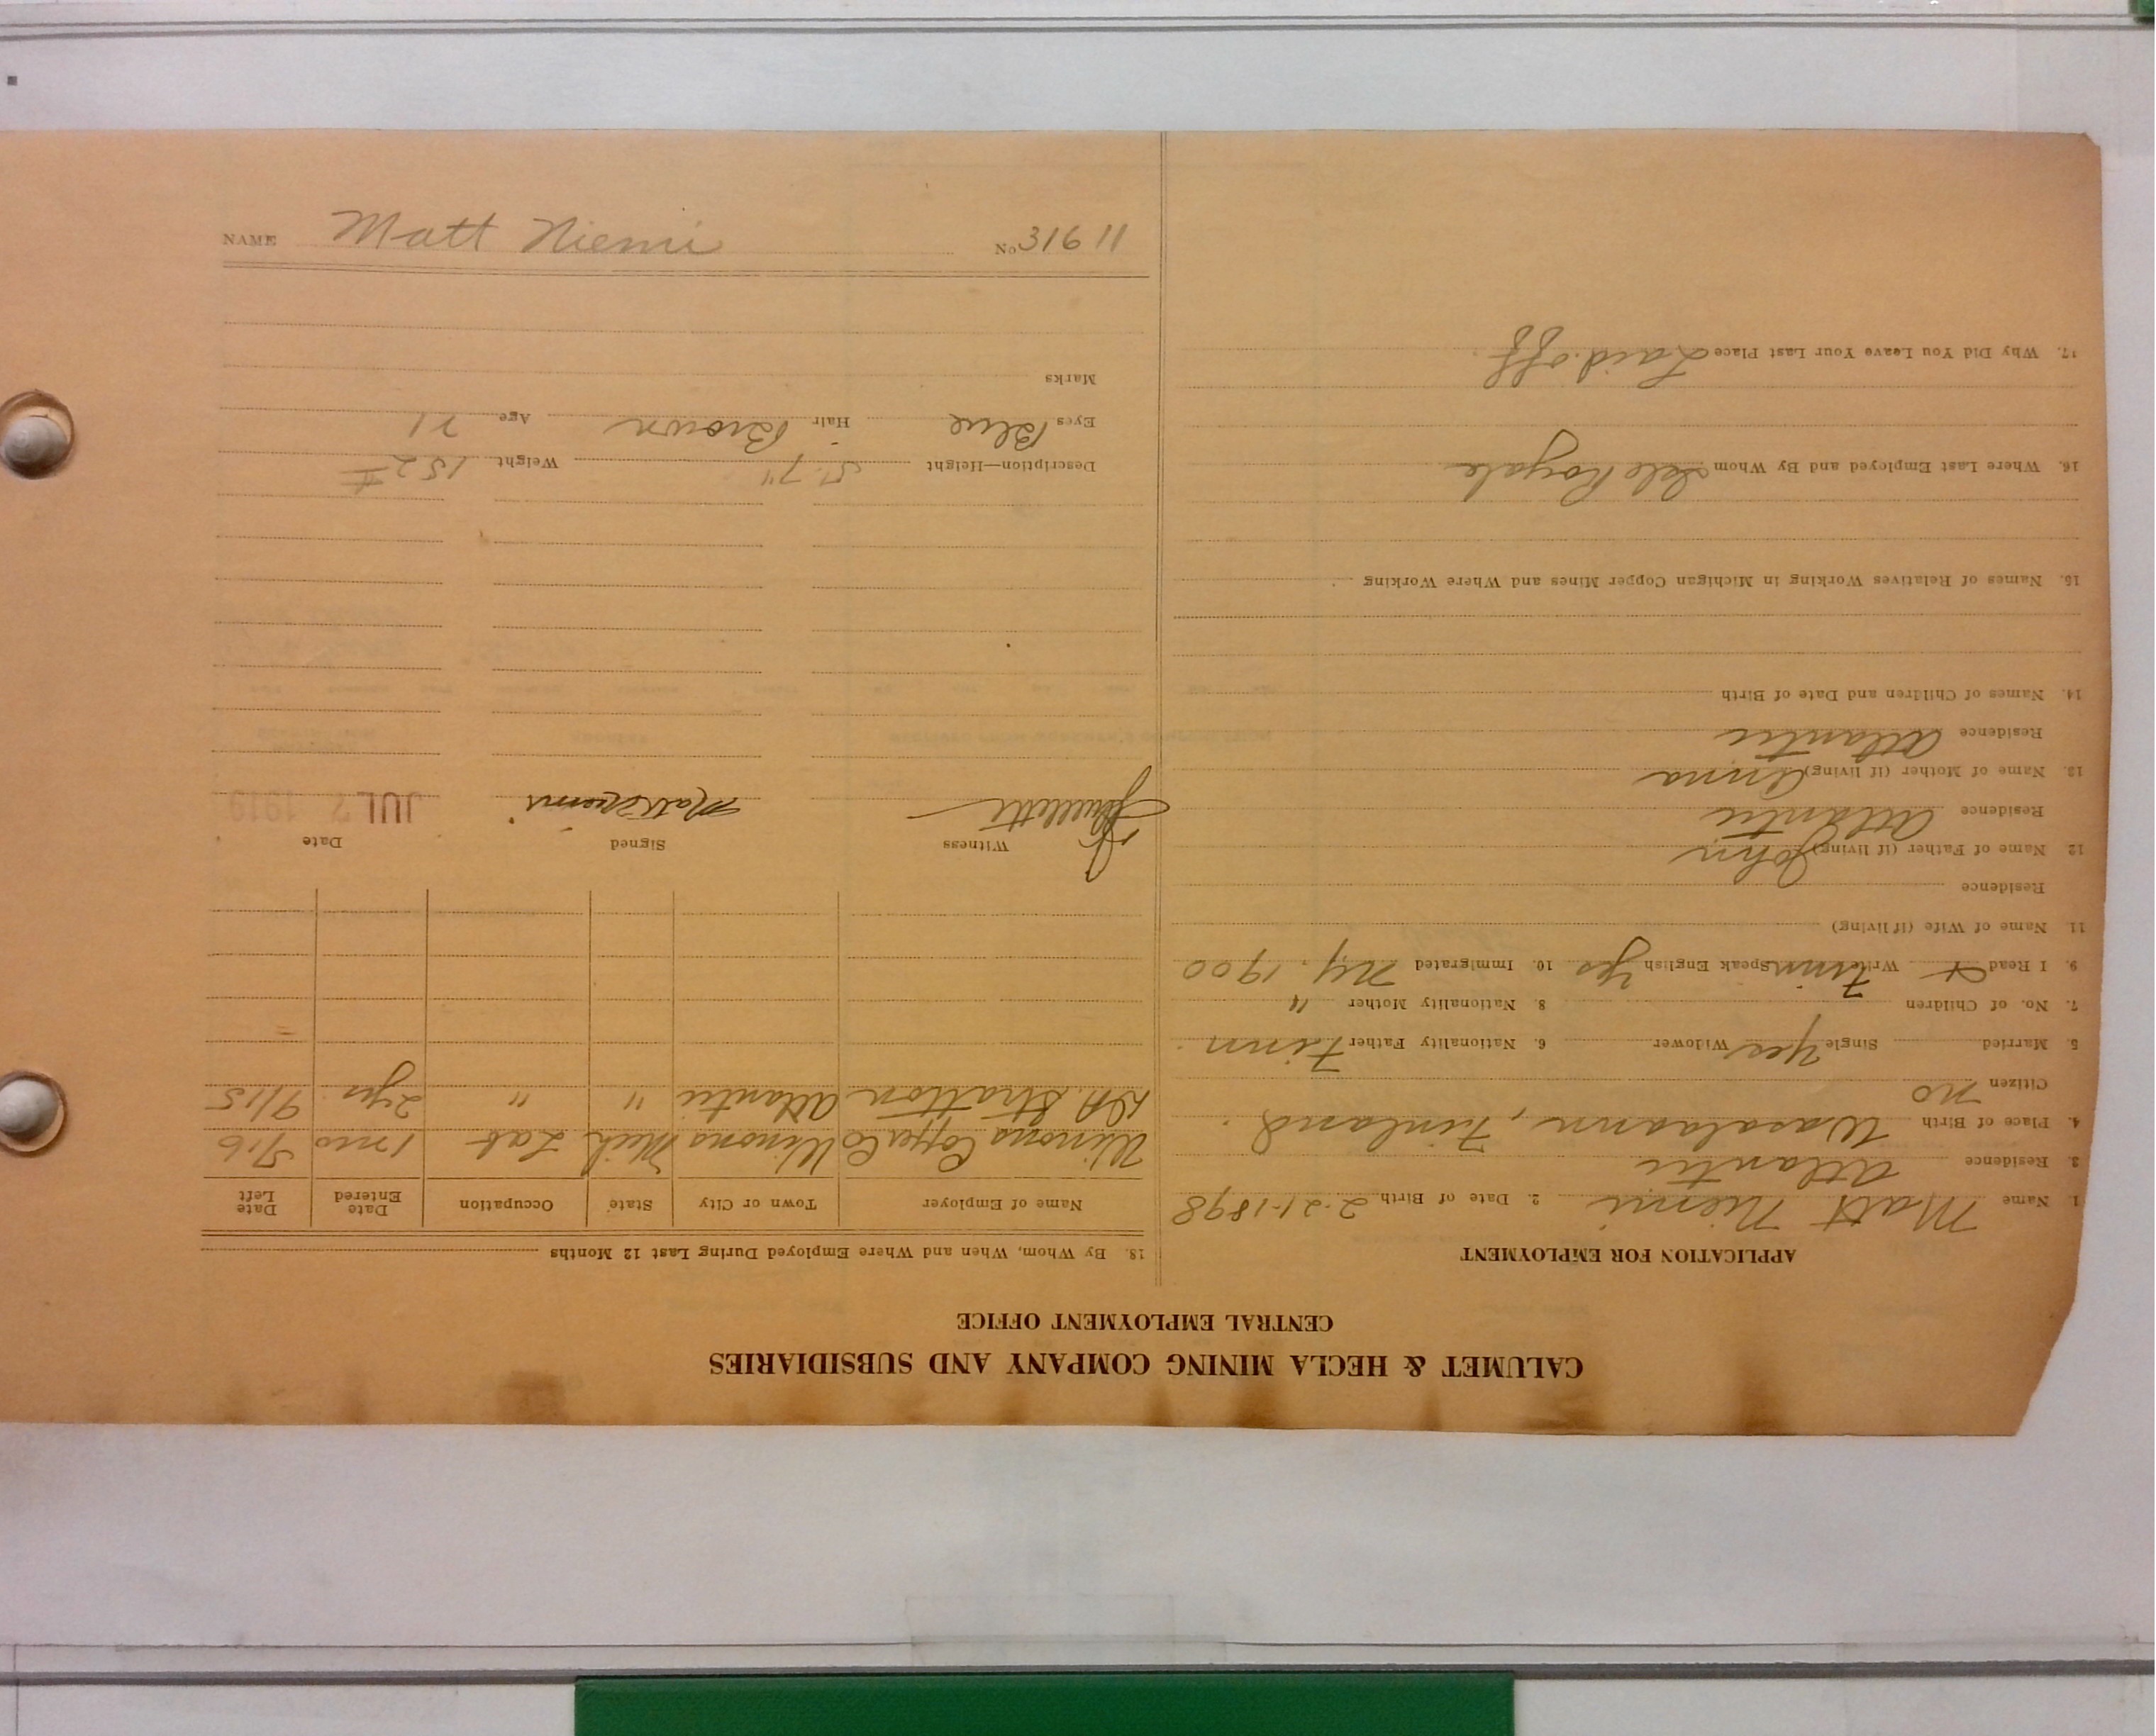 CALUMET & HECLA MINING COMPANY AND SUBSIDIARIES
CENTRAL EMPLOYMENT OFFICE
APPLICATION FOR EMPLOYMENT
1. Name Matt Niemi 2. Date of Birth 2-21-1898
3. Residence Atlantic
4. Place of Birth Wasalaann, Finland
Citizen no
5. Married Single Yes Widower 6. Nationality Father Finn
7. No. of Children 8. Nationality Mother "
9. I Read & Write Finn Speak English yes 10. Immigrated N.Y. 1900
11. Name of Wife (if living)
Residence
12. Name of Father (if living) John
Residence Atlantic
13. Name of Mother (if living) Anna
Residence Atlantic
14. Names of Children and Date of Birth
15. Names of Relatives Working in Michigan Copper Mines and Where Working
16. Where Last Employed and By Whom Isle Royale
17. Why Did You Leave Your Last Place Laid off
18. By Whom, When and Where Employed During Last 12 Months
Name of Employer Town or City State Occupation Date Entered Date Left
Winona Copper Co Winona Mich Lab 1 mo 5/16
Stratton Atlantic " " 2 yrs 9/15
Witness Signed Date
Matt Niemi JUL 2 1919
Description—Height 5'-7" Weight 152#
Eyes Blue Hair Brown Age 21
Marks
NAME Matt Niemi No 31611